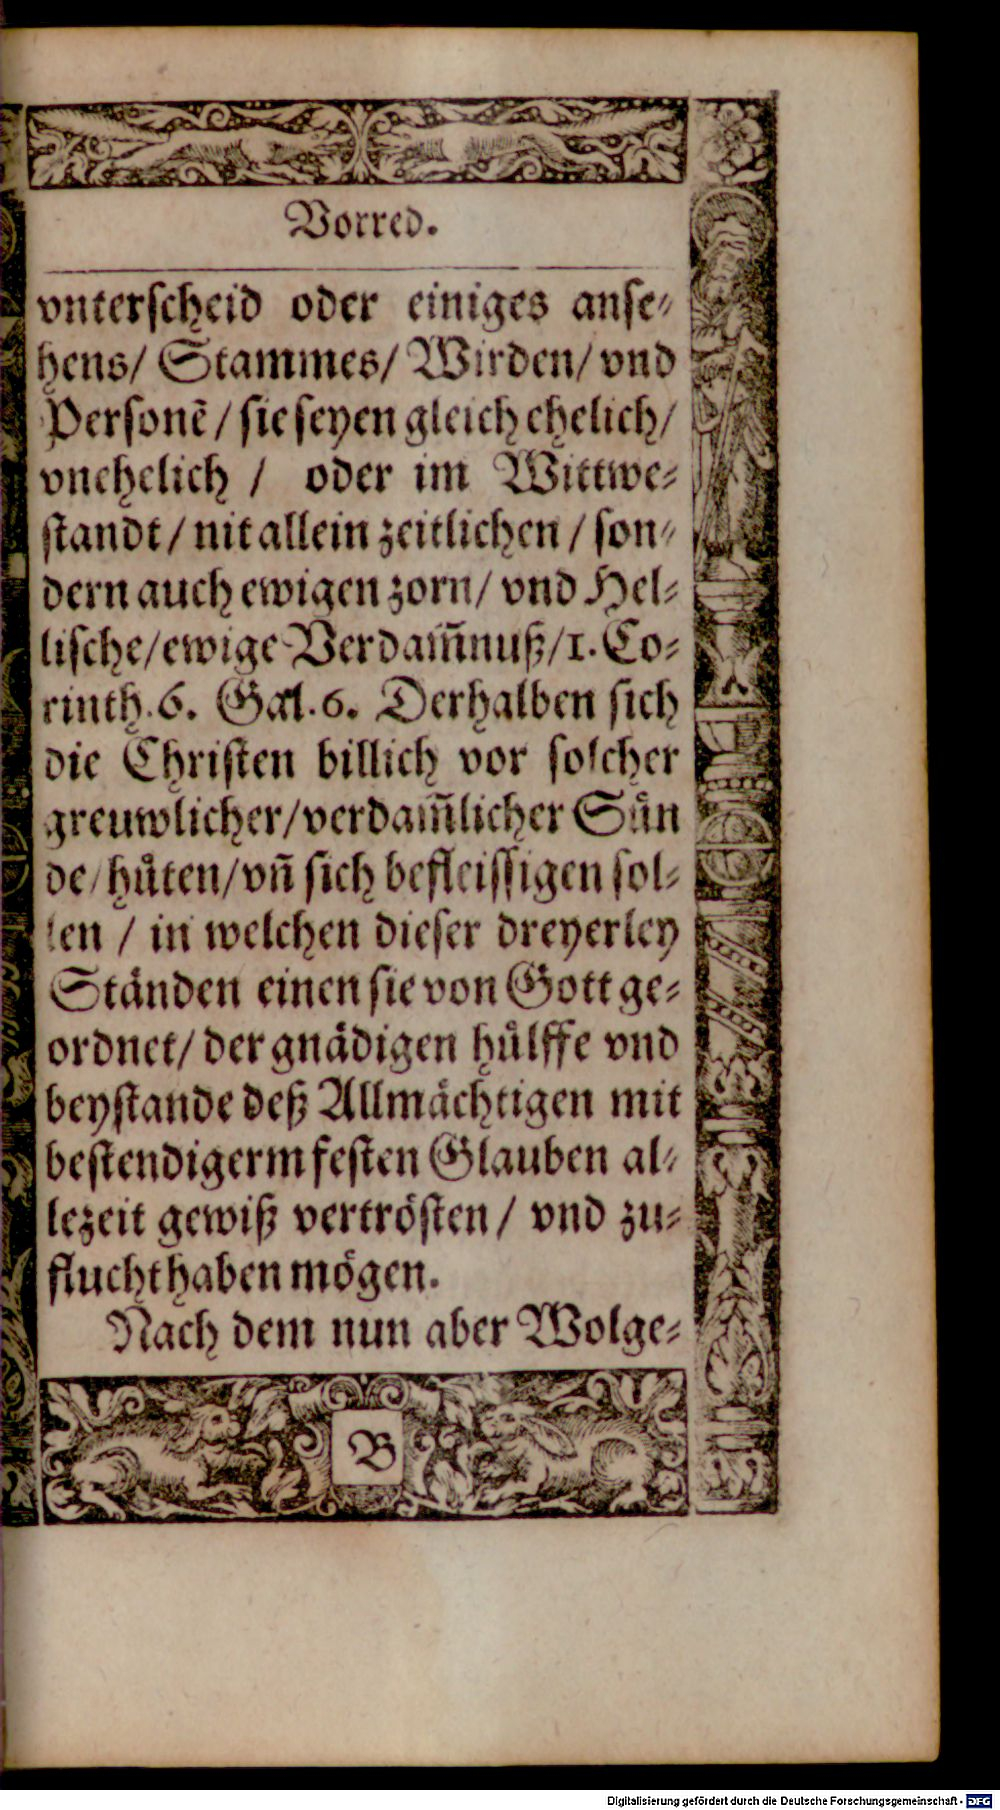 Vorred.
vnterscheid oder einiges anse⸗
hens/ Stammes/ Wirden/ vnd
Personē / sie seyen gleich ehelich/
vnehelich / oder im Wittwe⸗
standt / nit allein zeitlichen / son⸗
dern auch ewigen zorn/ vnd Hel⸗
lische/ewige Verdam̃nuß/1. Co⸗
rinth. 6. Gal. 6. Derhalben sich
die Christen billich vor solcher
greuwlicher/verdam̃licher Sün
de/ hüten/ vñ sich befleissigen sol⸗
len / in welchen dieser dreyerley
Ständen einen sie von Gott ge⸗
ordnet/ der gnädigen hülffe vnd
beystande deß Allmächtigen mit
bestendigerm festen Glauben al⸗
lezeit gewiß vertrösten / vnd zu⸗
flucht haben mögen.
Nach dem nun aber Wolge⸗
B
Digitalisierung gefördert durch die Deutsche Forschungsgemeinschaft - DFG